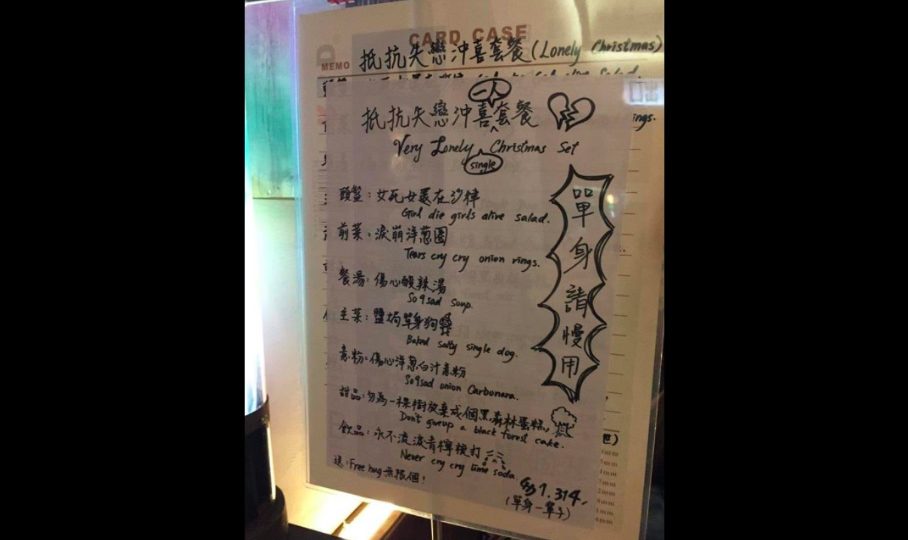 CARD CASE
MEMO
抵抗失戀沖喜套餐 (Lonely Christmas)
一人
抵抗失戀沖喜套餐
Very Lonely Christmas Set
single
頭盤：女死女還在沙律
Girl die girls alive salad.
前菜：淚崩洋蔥圈
Tears cry cry onion rings.
餐湯：傷心酸辣湯
So9sad soup.
主菜：鹽焗單身狗
Baked salty single dog.
意粉：傷心洋蔥白汁意粉
So9sad onion Carbonara.
甜品：勿為一棵樹放棄成個黑森林蛋糕
Don't giveup a black forest cake.
飲品：永不流淚青檸梳打
Never cry cry lime soda
送：Free hug 無限個！
$1,314
(單身一輩子)
單身請慢用